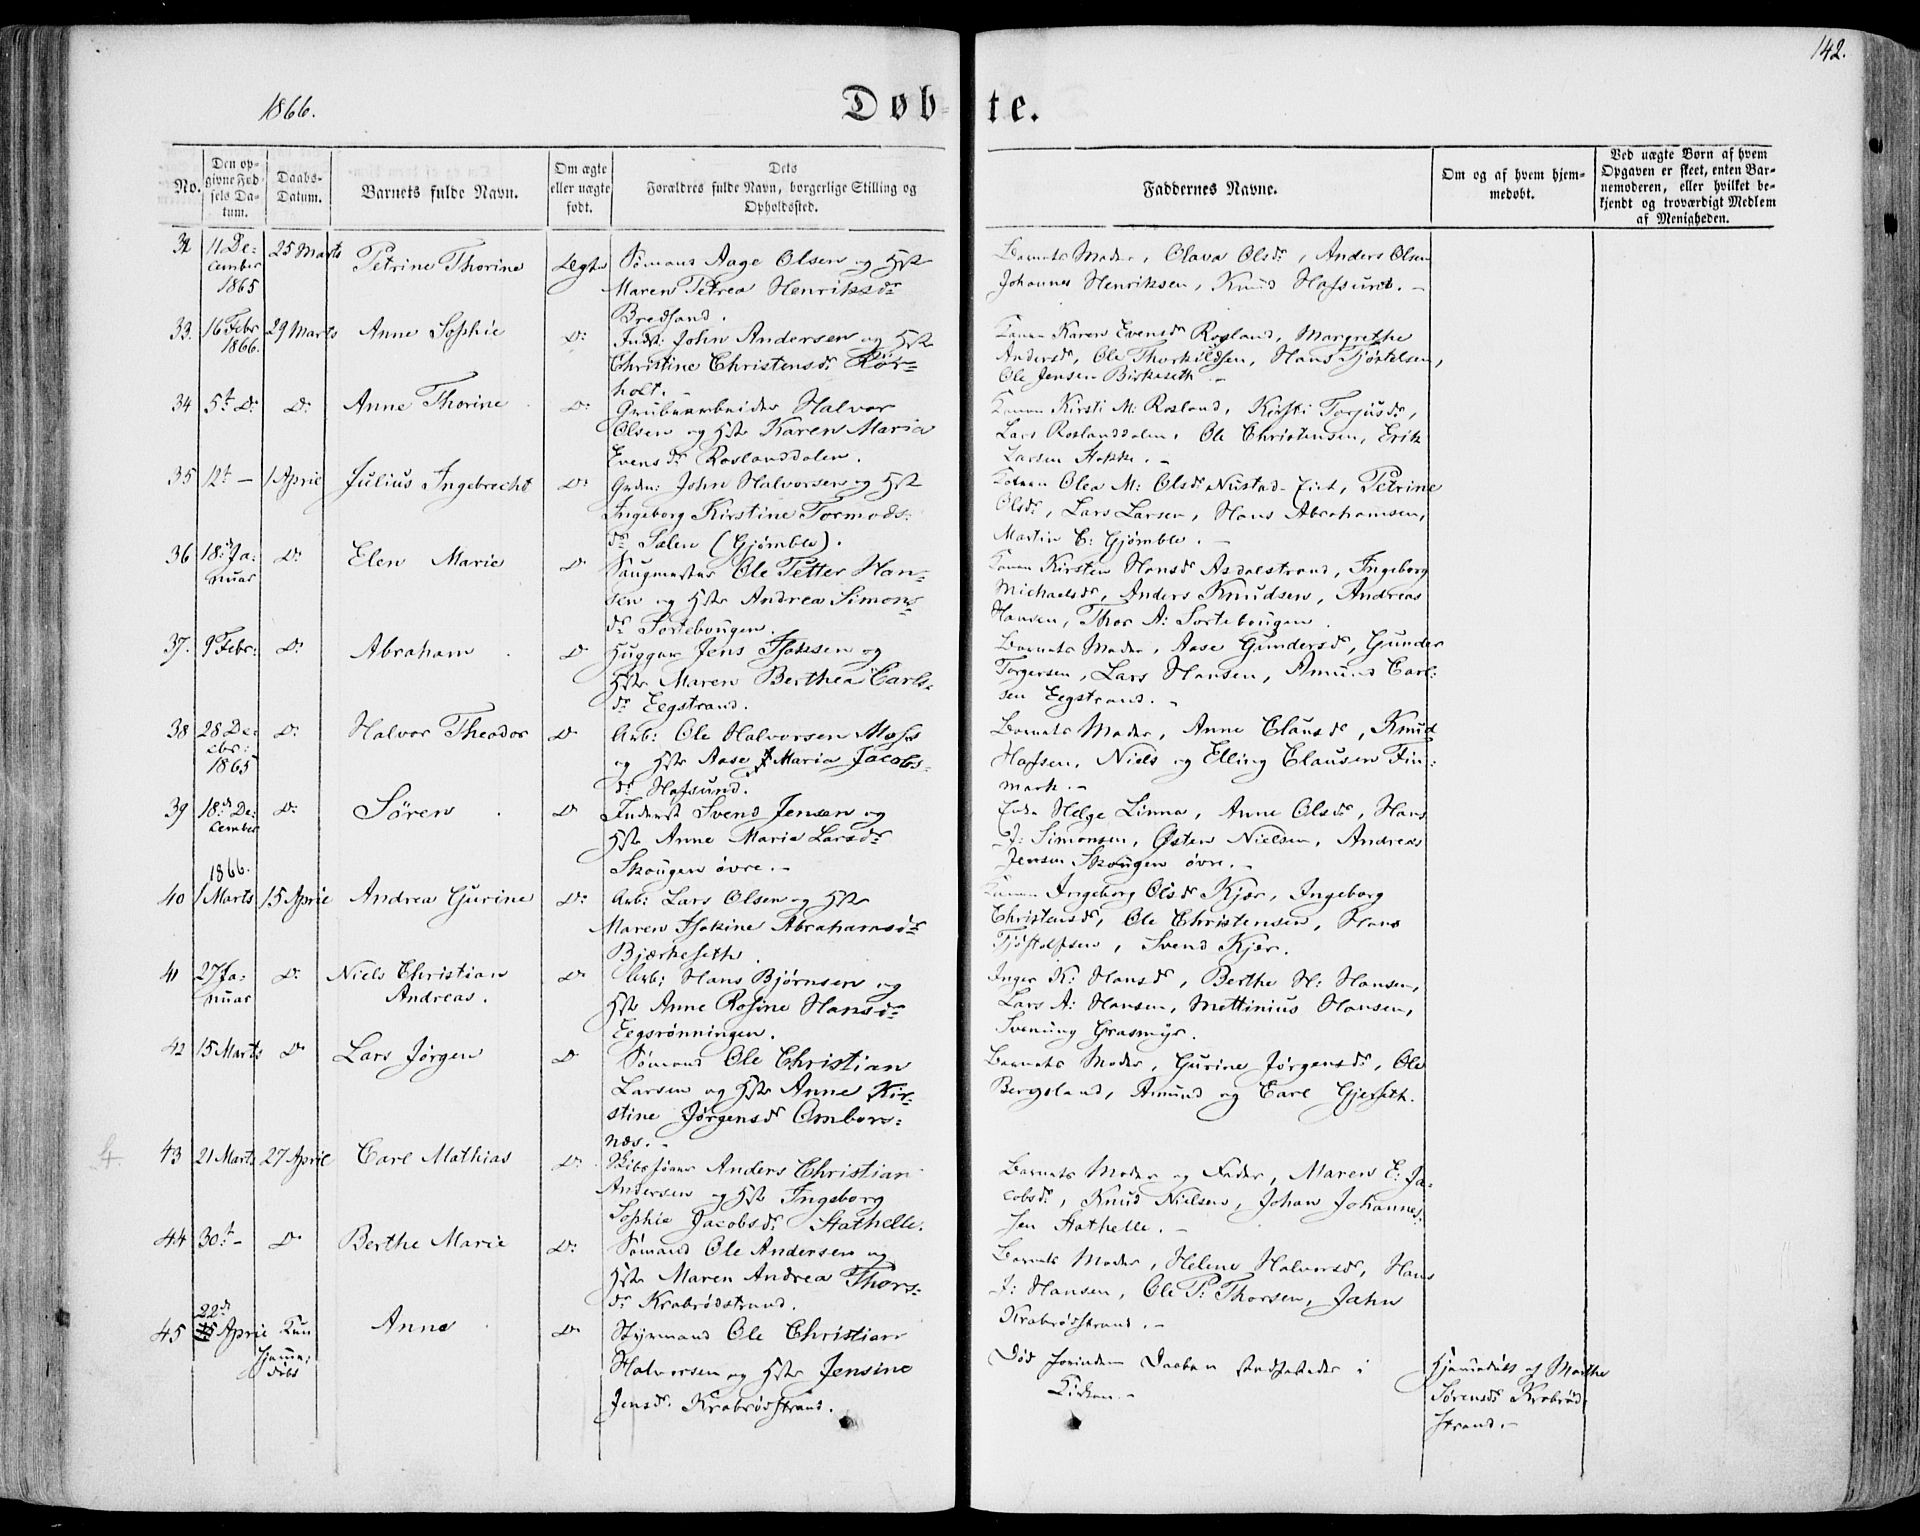 142.
1866.
Døbte.
No.
Den opgivne Fødsels Datum.
Daabs-Datum.
Barnets fulde Navn.
Om ægte eller uægte født.
Dets Forældres fulde Navn, borgerlige Stilling og Opholdssted.
Faddernes Navne.
Om og af hvem hjemmedøbt.
Ved uægte Børn af hvem Opgaven er skeet, enten Barnemoderen, eller hvilket bekjendt og troværdigt Medlem af Menigheden.
32 11 December 1865 25 Marts Petrine Thorine Ægte
Sømand Aage Olsen og Hst
Maren Petrea Henriksdr
Bredsand.
Barnets Moder, Olava Olsdr, Anders Olsen
Johannes Henriksen, Knud Hafsund. -
33. 16 Febr 1866. 29 Marts Anne Sophie Do
Indst: John Andersen og Hst
Christine Christensdr Rør-
holt. -
Karen Evensdr Rosland, Margrethe
Andersdr, Ole Thorkildsen, Hans Tjøstelsen,
Ole Jensen Birkeseth -
34 5t Do Do Anne Thorine Do
Grubearbeider Halvor
Olsen og Hst Karen Maria
Evensdr Roslanddalen.
Kirsti M: Rosland, Kirsti Torjusdr,
Lars Roslanddalen, Ole Christensen, Erik
Larsen Stokke. -
35 12t - 1 April Julius Ingebrecht Do
Grdm: John Halvorsen og Hst
Ingeborg Kirstine Tormods-
dr Salen (Gjømble).
Olea M: Olsdr Nustad, Petrine
Olsdr, Lars Larsen, Hans Abrahamsen,
Martin C: Gjømble. -
36 18de Januar Do Elen Marie Do
Saugmester Ole Petter Han-
sen og Hst Andrea Simons-
dr Sortebougen.
Kirsten Hansdr Asdalstrand, Ingeborg
Michaelsdr, Anders Knudsen, Andreas
Hansen, Thor A: Sortebougen.
37. 9 Febr: Do Abraham Do
Huggar Jens Isaksen og
Hst Maren Berthea Carls-
dr Eegstrand.
Barnets Moder, Aase Gundersdr, Gunder
Torgersen, Lars Hansen, Amund Carl-
sen Eegstrand. -
38 28 Decbr: 1865 Do Halvor Theodor Do
Arb: Ole Halvorsen Moss
og Hst Aase Maria Jacobs-
dr Hafsund.
Barnets Moder, Anne Clausdr, Knud
Hafsen, Niels og Elling Clausen Fin-
mark. -
39 18de December Do Søren Do
Inderst Svend Jensen og
Hst Anne Maria Larsdr
Skougen øvre. -
Helge Linna, Anne Olsdr, Hans
J: Simonsen, Østen Nielsen, Andreas
Jensen Skougen øvre. -
1866.
40 1 Marts 15 April Andrea Gurine Do
Arb: Lars Olsen og Hst
Maren Isakine Abrahamsdr
Bjærkeseth.
Ingeborg Olsdr Kjær, Ingeborg
Christensdr, Ole Christensen, Hans
Tjøstolfsen, Svend Kjær.
41 27 Januar Do Niels Christian Andreas. Do
Arb: Hans Bjørnsen og
Hst Anne Rosine Hansdr
Eegsrønningen.
Inger K: Hansdr, Berthe H: Hansen,
Lars A: Hansen, Mettinius Hansen,
Svenung Grasmyr.
42 15 Marts Do Lars Jørgen Do
Sømand Ole Christian
Larsen og Hst Anne Kir-
stine Jørgensdr Ombors-
næs. -
Barnets Moder, Gurine Jørgensdr, Ole
Bergsland, Amund og Carl Gjeseth.
43 21 Marts 27 April Carl Mathias Do
Anders Christian
Andersen og Hst Ingeborg
Sophie Jacobsdr Stathelle.
Barnets Moder og Fader, Maren E: Ja-
cobsdr, Knud Nielsen, Johan Johannes-
sen Stathelle. -
44 30t - Do Berthe Marie Do
Sømand Ole Andersen og
Hst Maren Andrea Thors-
dr Krabrødstrand.
Barnets Moder, Helene Halvorsdr, Hans
J: Hansen, Ole P: Thorsen, John
Krabrødstrand. -
45 22de April Kun hjemmedøbt Anne Do
Styrmand Ole Christian
Halvorsen og Hst Jensine
Jensdr Krabrødstrand.
Død forinden Daaben stadfæstedes i
Kirken. -
Hjemmedøbt af Marthe
Sørensdr Krabrød-
strand. -